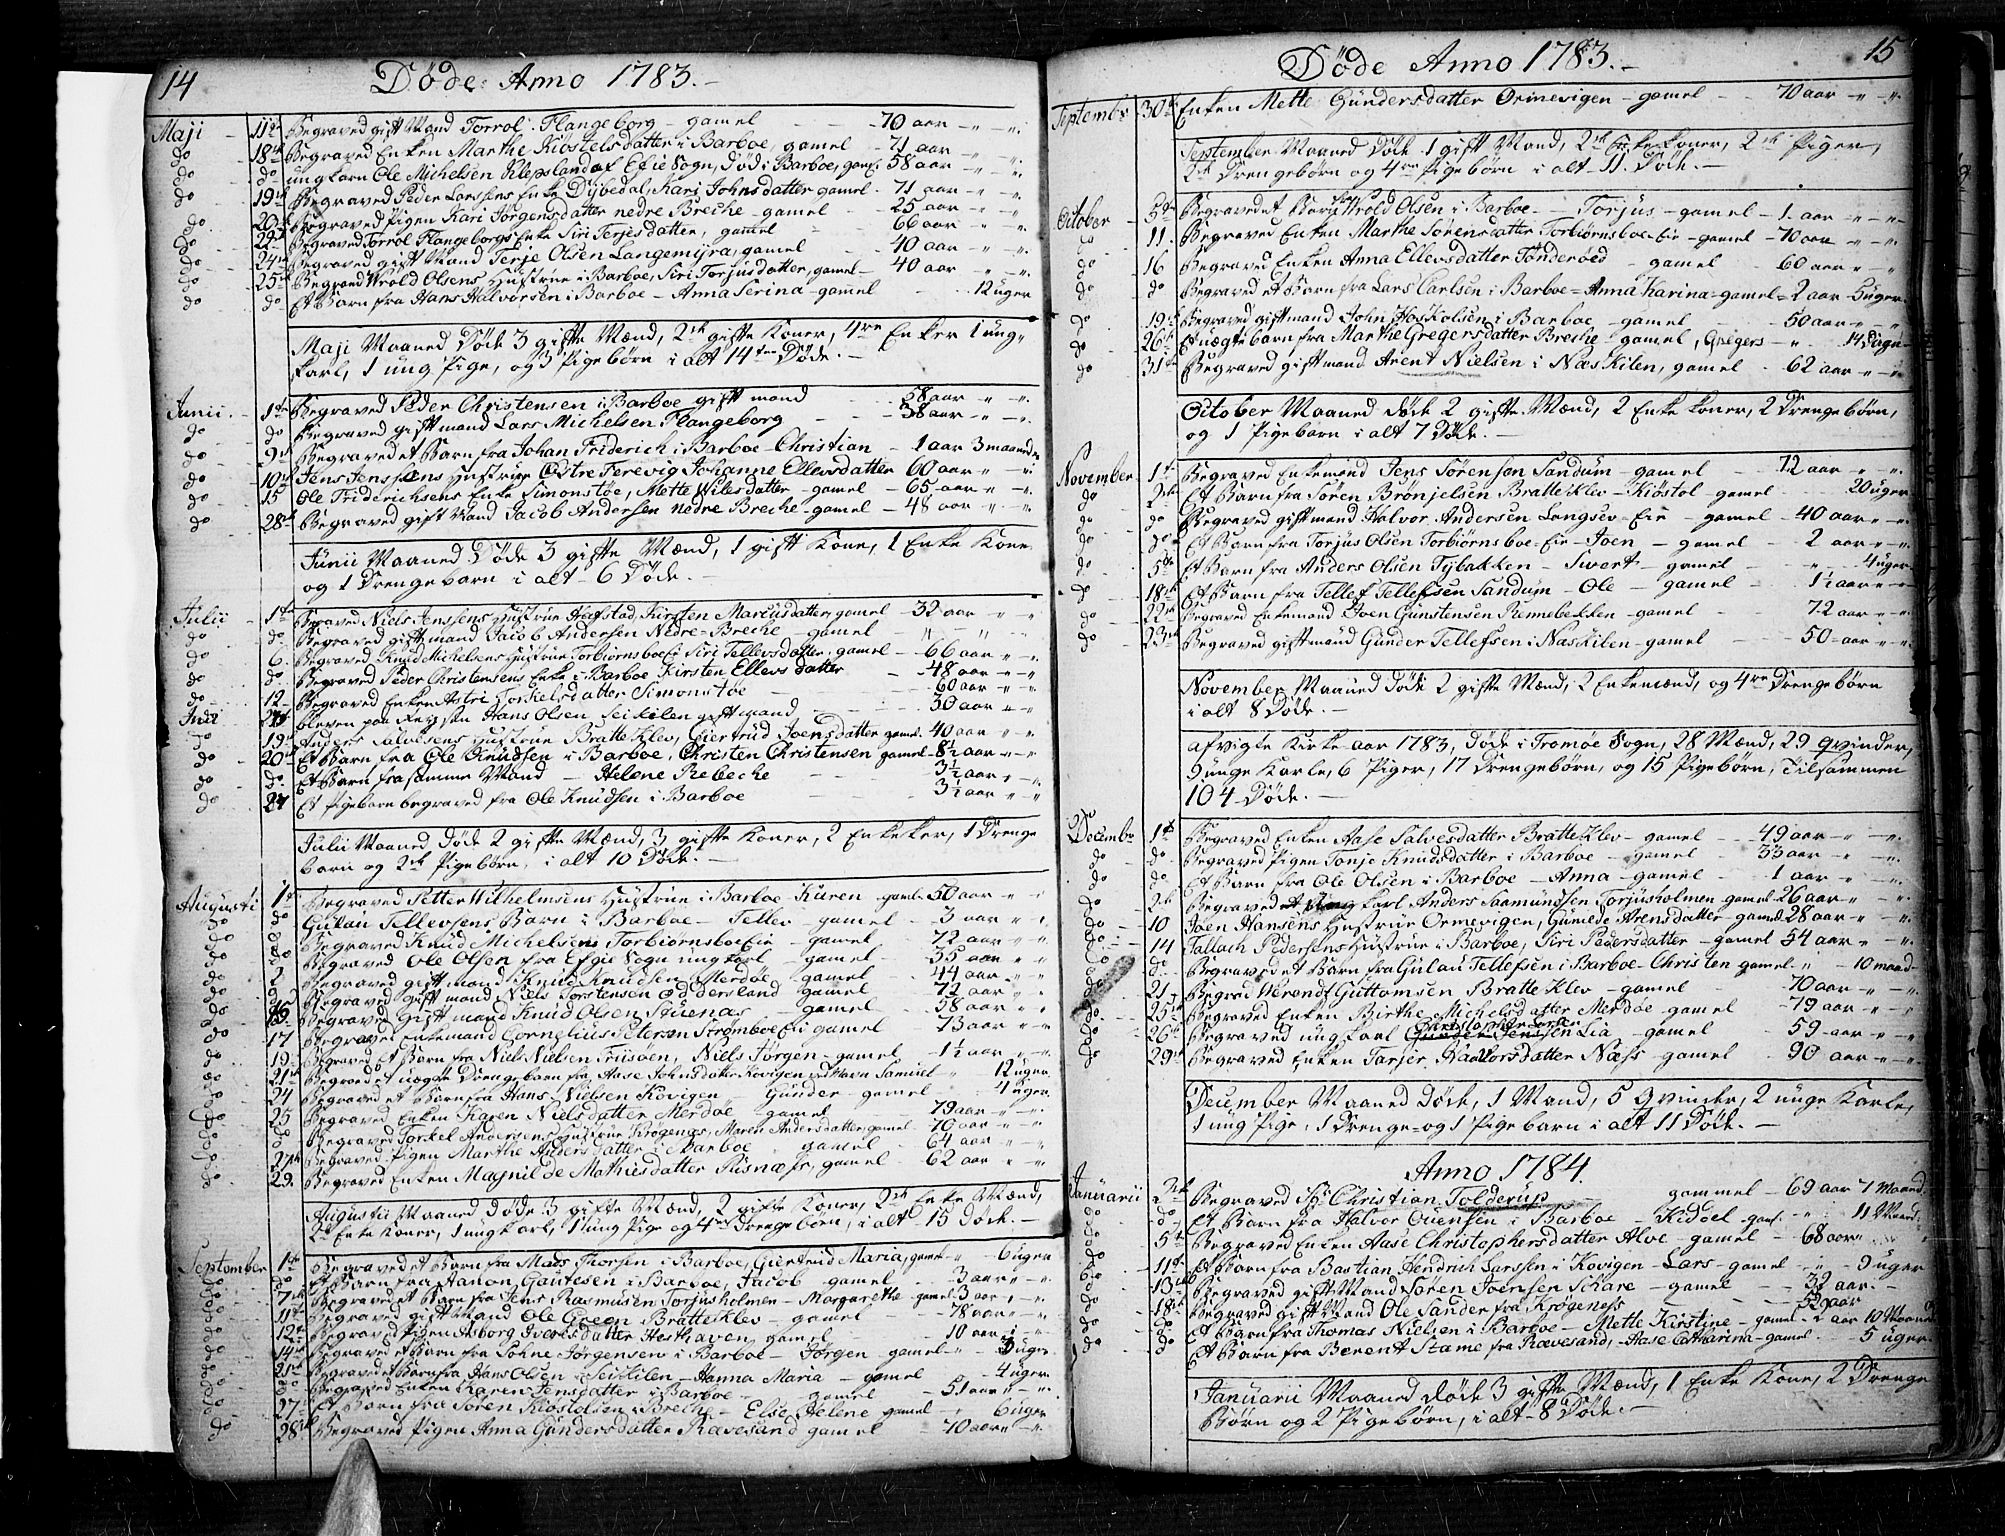 14 Døde Anno 1783.
Maji 11te Begraved gift Mand Torrol Flangeborg - gamel 70 aar
do 18de Begraved Enken Marthe Kiøstelsdatter i Barboe, gamel - 71 aar
do do ungkarn Ole Michelsen Klepsland af Efie Sogn, Død i Barboe, gam. 58 aar
do 19de Begraved Peder Larssens Enke Dybedal, Kari Johnsdatter gamel - 71 aar
do Begraved Pigen Kari Jørgensdatter nedre Breche - gamel - 25 aar
do Begraved Torrol Flangeborgs Enke Siri Terjesdatter, gamel - 66 aar
do 24de Begraved gift Mand Terje Olsen Langemyra, gamel - 40 aar
do 25de Begraved Wrold Olsens Hustrue i Barboe, Siri Torjusdatter, gamel - 40 aar
do do Et Barn fra Hans Halvorsen i Barboe - Anna Serina - gamel 12 uger
Maji Maaned Døde 3 gifte Mænd, 2de gifte Koner, 4re Enker 1 ung
karl, 1 ung Pige, og 3 Pigebørn i alt 14ten Døde.
Junii 1te Begraved Peder Christensen i Barboe gift mand 58 aar
do do Begraved gift mand Lars Michelsen Flangeborg 38 aar
do 9de Begraved et Barn fra Johan Friderich i Barboe Christian - 1 aar 3 maaneder
do 10de Jens Jenssens Hustrue Østre Terevig Johanne Ellevsdatter 60 aar
do 15 Ole Friderichsens Enke Simonstøe, Mette Nilesdatter - gamel - 65 aar
do 28de Begraved gift Mand Jacob Andersen nedre Breche - gamel - 48 aar
Junii Maaned Døde 3 gifte Mænd, 1 gift Kone, 1 Enke Kone
og 1 Drengebarn i alt - 6 Døde.
Julii 1te Begraved Niels Jenssens Hustrue Hafstad, Kirsten Marcusdatter, gamel - 32 aar
do do Begraved gift mand Jacob Andersen Nedre-Breche - gamel
do 6. Begraved Knud Michelsens Hustrue Torbiørnsboe Siri Tellevsdatter, gamel - 66 aar
do do Begraved Peder Christensens Enke i Barboe Kirsten Ellevsdatter - 48 aar
do 12 Begraved Enken Astri Torkelsdatter Simonstøe 60 aar
Julii bleven paa Reysen Hans Olsen Seikilen gift mand 30 aar
do 19 Anders Salvesens Hustrue Brattekløv, Giertrud Joensdatter gamel - 40 aar
do 20de Et Barn fra Ole Knudsen i Barboe, Christen Christensen gamel - 8½ aar
do do Et Barn fra samme Mand - Helene Rebeche 3½ aar
do 27 Et Pigebarn begraved fra Ole Knudsen i Barboe 3½ aar
Julii Maaned Døde 2 gifte Mænd, 3 gifte Koner, 2 Enkeker, 1 Drenge
barn og 2de Pigebørn, i alt 10 Døde.
Augusti 1te Begraved Petter Wilhelmsens Hustrue i Barboe Karen - gamel - 50 aar
do do Gulau Tellevsens Barn i Barboe - Tellev - gamel 3 aar
do do Begraved Knud Michelsen Torbiørnsboe Eie - gamel - 72 aar
do do Begraved Ole Olsen fra Efgie Sogn ungkarl - gamel - 35 aar
do 2 Begraved gift mand Knud Knudsen Merdøe - gamel 44 aar
do Begraved gift mand Niels Torstensen Oddersland - gamel 72 aar
do 15 Begraved gift mand Knud Olsen Stuenæs - gamel - 58 aar
do 17 Begraved Enkemand Cornelius Petersen Stromboe Ei gamel - 73 aar
do 19 Begraved Et Barn fra Niels Nielsen Friisøen, Niels Jørgen - gamel - 1½ aar
do 21de Begraved et uægte Drengebarn fra, Aase Johnsdatter Kovigen ved Navn Samuel 12 uger
do 24 Begraved et Barn fra Hans Nielsen Kovigen Gunder - gamel 4 uger
do 25 Begraved Enken Karen Nielsdatter Merdøe - gamel 79 aar
do do Begraved Torkel Andersens Hustrue Krøgenæs, Maren Andersdatter, gamel - 70 aar
do 27de Begraved Pigen Marthe Andersdatter i Barboe gamel - 64 aar
do 29. Begraved Enken Magnilde Mathisdatter Risnæss, gamel - 62 aar
Augustii Maaned døde 3 gifte Mænd, 2 gifte Koner, 2de Enke Mænd,
2de Enke Koner, 1 ungkarl, 1 ung Pige og 4re Drengebørn, i alt 15 Døde.
September 1te Begraved et Barn fra Mads Thorsen i Barboe, Giertrud Maria, gamel - 6 uger
do do Et Barn fra Aanon Gautesen i Barboe, Jacob - gamel - 3 aar
do 7de Begraved et Barn fra Jens Rasmusen Torjusholmen - Margarethe - gamel 3 aar
do 11te Begraved gift Mand Ole Green Bratteklev - gamel - 78 aar
do 12te Begraved Pigen Asborg Iversdatter Hesthaven, gamel 10 aar
do 14de Begraved et Barn fra Søhne Jørgensen i Barboe - Jørgen - gamel - uger
do 21de Begraved et Barn fra Hans Olsen - Seikilen - Hanna Maria - gamel 4 uger
do do Begraved Enken Karen Jensdatter i Barboe gamel - 51 aar
do 27 Et Barn fra Søren Kiøstelsen i Breche - Else Helene gamel - 6 uger
do 28de Begraved Pigen Anna Gundersdatter Ravesand gamel - 70 aar
Døde Anno 1783. 15
Septembr 30te Enken Mette Gundersdatter Ormevigen - gamel 70 aar
September Maaned Døde 1 gift Mand, 2de Enke Koner, 2de Piger,
2de Drengebørn og 4re Pigebørn i alt - 11. Døde.
October 5te Begraved et Barn fra Wrold Olsen i Barboe - Torjus - gamel - 1 aar
do 11. Begraved Enken Marthe Sørensdatter Torbiørnsboe - Eie - gamel - 70 aar
do 16 Begraved Enken Anna Ellevsdatter Tønderoed - gamel 60 aar
do do Begraved et Barn fra Lars Carlsen i Barboe - Anna Karina - gamel - 2 aar 5 uger
do 19de Begraved gift mand John Hoskolsen i Barboe - gamel 50 aar
do 26de Et uægte barn fra Marthe Gregersdatter Breche - gamel, Gregers 14 Dage
do 31te Begraved gift mand Arent Nielsen i Næskilen, gamel 62 aar
October Maaned døde 2 gifte Mænd, 2 Enke koner, 2 Drengebørn,
og 1 Pigebarn i alt 7 Døde.
November 1te Begraved Enkemand Jens Sørensen Sandum - gamel 72 aar
do 2de Et Barn fra Søren Brønjelsen Bratteklev - Kiøstol - gamel 20 uger
do do Begraved gift mand Halvor Andersen Longsev - Eie - gamel - 40 aar
do do Et Barn fra Torjus Olsen Torbiørnsboe - Eie - Joen - gamel - 2 aar
do 5te Et Barn fra Anders Olsen Tybakken - Sivert - gamel 4 uger
do 18de Et Barn fra Tellef Tellefsen Sandum - Ole - gamel - 1½ aar
do 22de Begraved Enkemand Joen Gunstensen Remebekken - gamel 72 aar
do 23de Begraved gift mand Gunder Tellefsen i Naskilen - gamel 50 - aar
November Maaned døde 2 gifte Mænd, 2 Enkemænd, og 4re Drengebørn
i alt 8 Døde.
afvigte Kirke-aar 1783, døde i Tromøe Sogn, 28 Mænd, 29 qvinder,
9 unge Karle, 6 Piger, 17 Drengebørn, og 15 Pigebørn, Tilsammen
104 Døde.
Decembr 1te Begraved Enken Aase Salvesdatter Bratteklev - gamel - 49 aar
do do Begraved Pigen Tonje Knudsdatter i Barboe - gamel 33 aar
do do Et Barn fra Ole Olsen i Barboe - Anna - gamel - 1 aar
do 2de Begraved ung karl Anders Saamundsen Torjusholmen gamel 26 aar
do 10 Joen Hansens Hustrue Ormevigen, Gumede Arensdatter - gamel 28 aar
do 14 Tallach Pedersens Hustrue i Barboe, Siri Pedersdatter - gamel 54 aar
do do Begraved et Barn fra Gulau Tellefsen i Barboe - Christen gamel 10 maad
do 21 Begrav Werendt Guttormsen Bratteklev - gamel 70 aar
do 25de Begraved Enken Birthe Michelsdatter Merdøe gamel 79 aar
do 26de Begraved ung karl Lia - gamel 59 aar
do 29de Begraved Enken Tarjer Halvorsdatter Næss - gamel 90 aar
December Maaned døde, 1 Mand, 5 qvinder, 2 unge Karle,
1 ung Pige, 1 Drenge- og 1 Pigebarn i alt 11 Døde.
Anno 1784.
Januarii 2de Begraved Sr Christian Tolderup gammel - 69 aar 7 Maaned
do do Et Barn fra Halvor Ouensen i Barboe - Kidoel - gam. 11 Maand
do 5te Begraved Enken Aase Christophersdatter Alve - gamel - 68 aar
do 11te Et Barn fra Bastian Hendrich Larssen i Kovigen - Lars - gamel 9 uger
do 13de Begraved gift Mand Søren Joensen Skare - gamel 32 aar
do 18de Begraved gift Mand Ole Sander fra Krøgenæss 52 aar
do do Et Barn fra Thomas Nielsen i Barboe - Mette Kirstine - gamel - 2 aar 10 Maaned
do do Et Barn fra Berent Stame fra Ravesand, - Aase Catharina - gamel - 5 uger
Januarii Maaned døde 3 gifte Mænd, 1 Enke Kone, 2 Drenge
Børn og 2 Pigebørn, i alt - 8 Døde.